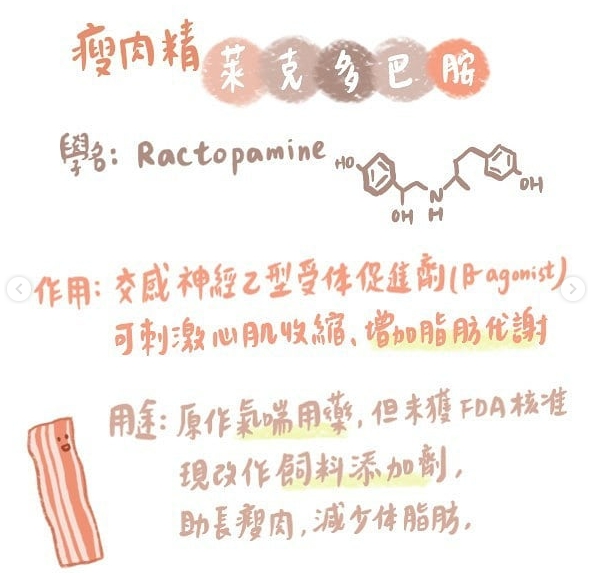 瘦肉精 萊克多巴胺
學名: Ractopamine
HO
OH
N
H
OH
作用: 交感神經乙型受体促進劑(β-agonist)
可刺激心肌收縮、增加脂肪代謝
用途: 原作氣喘用藥, 但未獲FDA核准
現改作飼料添加劑,
助長瘦肉, 減少体脂肪.